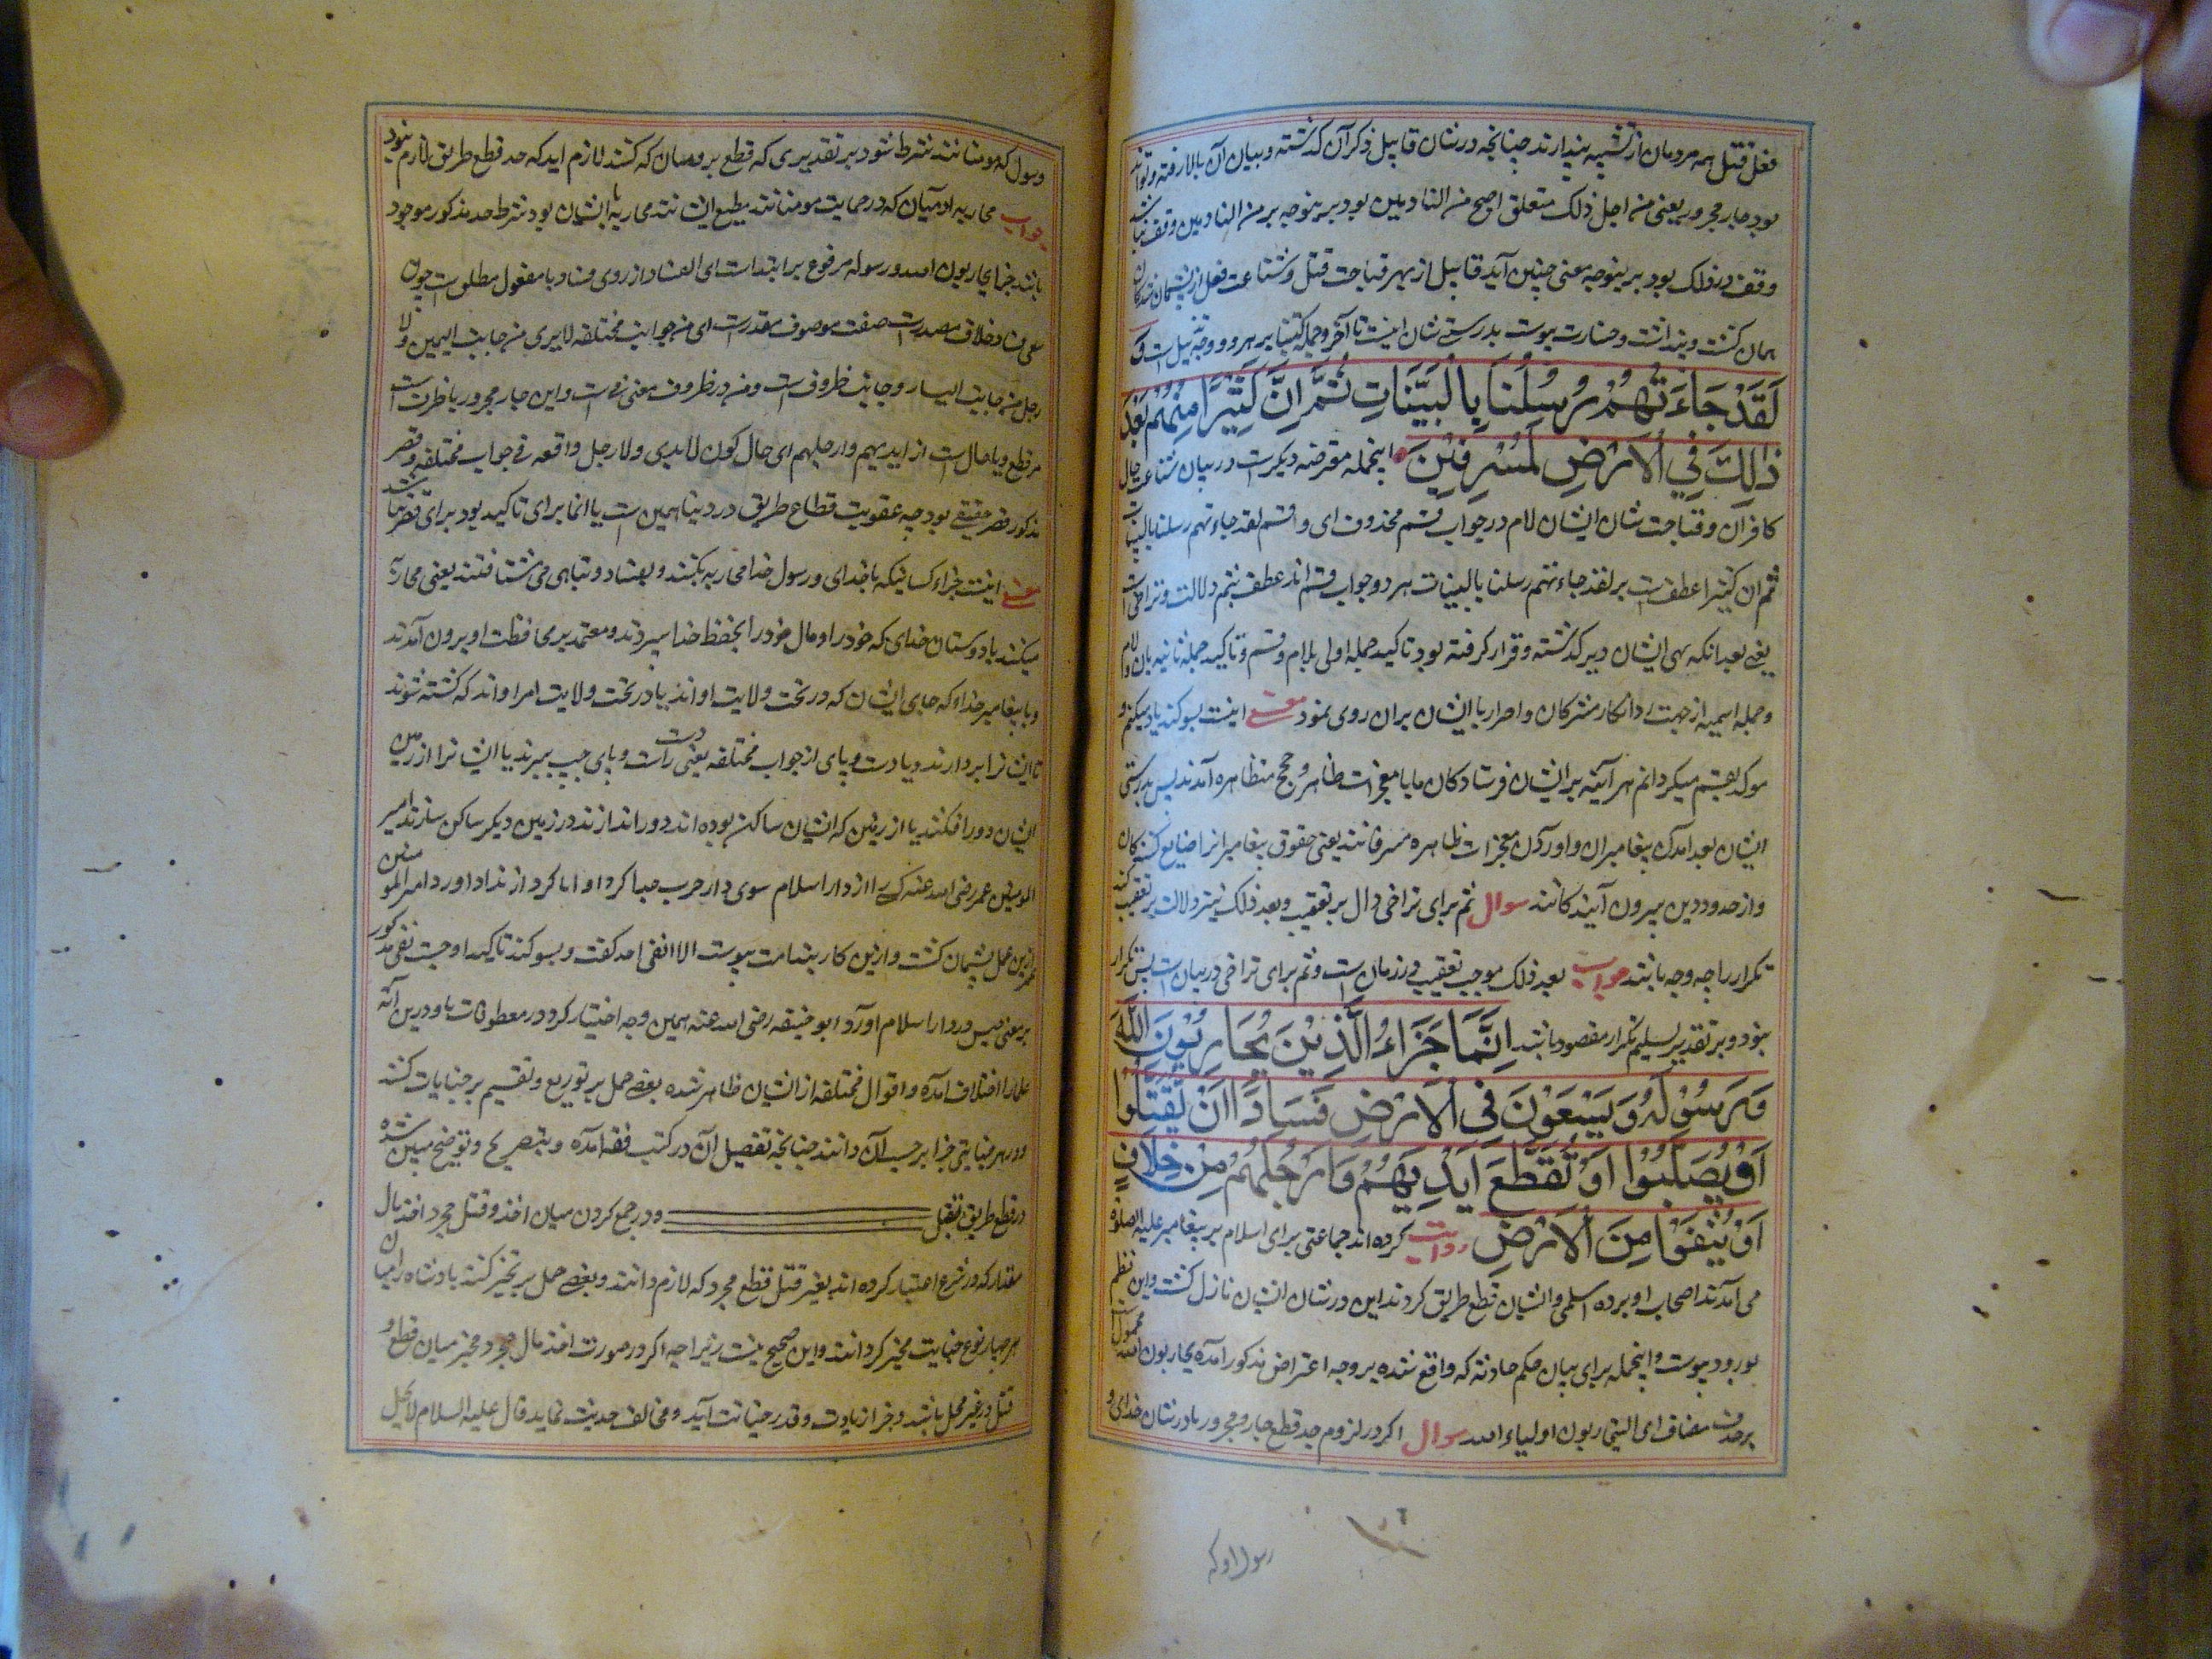 فعل قتل همه مردمان از تشبیه پندارند چنانچه در شان قابیل ذکر آن گذشته و بیان آن بالا رفته و تواند
بود جار مجرور یعنی من اجل ذلک متعلق اصبح من النادمین بود برینوجه بر من النادمین وقف نباشد
وقف در ذلک بود برینوجه معنی چنین آید قابیل از بهر قباحت قتل و شناعت فعل از پشیمان شدکان
همان کشت و پنداشت و خسارت پیوست بدرستی شان اینست تا آخر و جمله کتبنا بر هر دو وجه
لَقَدْ جَاءَتْهُمْ رُسُلُنَا بِالْبَيِّنَاتِ ثُمَّ إِنَّ كَثِيْرًا مِنْهُمْ بَعْدَ
ذٰلِكَ فِي الْاَرْضِ لَمُسْرِفُيْنَ اینجمله معترضه دیکرست در بیان شناعت حال
کافران و قباحت شان ایشان لام در جواب قسم محذوف ای و اقسم لقد جاءتهم رسلنا بالبینات
ثم ان کثیرا عطف ست بر لقد جاءتهم رسلنا بالبینات هر دو جواب قسم اند عطف بثم دلالت و تراخی است
یعنی بعد انکه بهی ایشان دیر کذشته و قرار کرفته بود تاکید جمله اولی بلام و قسم و تاکید جمله ثانیه بان و لام
و جمله اسمیه از جهت رد انکار مشرکان و اصرار با ایشان بران روی نمود معنی اینست بسوکند یاد میکنم و
موکد بقسم میکردانم هر آئینه بر ایشان فرستادکان ما با معجزات ظاهر و حجج متظاهره آمدند پس بدرستی
ایشان بعد آمدن پیغامبران و آوردن معجزات ظاهره مسرفانند یعنی حقوق پیغامبران ضایع کنندکان
و از حدود دین بیرون آیندکانند سوال ثم برای تراخی دال بر تعقیب و بعد ذلک نیز دلالت بر تعقیب کند
تکرار را چه وجه باشد جواب بعد ذلک موجب تعقیب در زمان ست و ثم برای تراخی در بیان ست پس تکرار
نبود و بر تقدیر تسلیم تکرار مقصود باشد اِنَّمَا جَزَاءُ الَّذِيْنَ يُحَارِبُوْنَ اللّٰهَ
وَرَسُوْلَهُ وَيَسْعَوْنَ فِى الْاَرْضِ فَسَادًا اَنْ يُقَتَّلُوْا
اَوْ يُصَلَّبُوْا اَوْ تُقَطَّعَ اَيْدِيَهُمْ وَاَرْجُلُهُمْ مِنْ خِلَافٍ
اَوْ يُنْفَوْا مِنَ الْاَرْضِ روایت کرده اند جماعتی برای اسلام بر پیغامبر علیه الصلوة
می آمدند اصحاب او برده اسلمی و ایشان قطع طریق کردند این در شان ایشان نازل کشت و این نظم
بورود پیوست و اینجمله برای بیان حکم حادثه که واقع شده بر وجه اعتراض مذکور آمده یحاربون الله محمول ست
بر حذف مضاف ای الذین یحاربون اولیاء الله سوال اکر در لزوم حد قطع جار و مجرور یا در شان خدای و
رسول او که
وسول که مومنانند شرط شود بر تقدیری که قطع بر مومنان که کنند لازم اید که حد قطع طریق لازم نبود
جواب محاربه آدمیان که در حمایت مومنانند مطیع ایشانند محاربه با ایشان بود شرط حد مذکور موجود
باشد جزا یحاربون الله و رسوله مرفوع بر ابتداست ای الفساد از روی فساد یا مفعول مطلق ست چون
سعی فساد خلاف مصدرست صفت موصوف مقدرست ای من جوانب مختلفه لا یدی من جانب الیمین و لا
رجل من جانب الیسار و جانب ظروف ست و من در ظروف معنی فی است و این جار مجرور یا ظرف است
مر قطع و یا حال ست از ایدیهم و ارجلهم ای حال کون الایدی و الارجل واقعه فی جوانب مختلفه و قصر
مذکور قصر حقیقی بود چه عقوبت قطاع طریق در دنیا همین است یا انما برای تاکید بود برای قصر نباشد
معنی اینست جزاء کسانیکه با خدای و رسول خدا محاربه بکنند و بفساد و تباهی می شتافتند یعنی محاربه
میکنند با دوستان خدای که خود را و مال خود را بحفظ خدا سپردند و معتمد بر محافظت او بیرون آمدند
و با پیغامبر خداء که جای ایشان که در تحت ولایت او اند یا در تحت ولایت امراو اند که کشته شوند
تا ایشانرا بردارند و یا دست و پای از جوانب مختلفه یعنی دست راست و پای چپ ببرند یا ایشانرا از زمین
ایشان دور افکنند یا از زمین که ایشان ساکن بوده اند دور اندازند در زمین دیکر ساکن سازند امیر
المومنین عمر رضی الله عنه کسی را از دار اسلام سوی دار حرب جدا کرد او ابا کرد از نداد اورد امیر المومنین
عمر ازین عمل پشیمان کشت و ازین کار بندامت پیوست الا انفی احد کفت و بسوکند تاکید او جست نفی مذکور
بر معنی حبس در دار اسلام آورد ابو حنیفه رضی الله عنه همین وجه اختیار کرد در معطوفات باو درین آیه
علما را اختلاف آمده و اقوال مختلفه از ایشان ظاهر شده بعضی حمل بر توزیع و تقسیم بر جنایات کنند
و در هر جنایتی جزا بر حسب آن دانند چنانچه تفصیل آن در کتب فقه آمده و بتصریح و توضیح مبین شده
در قطع طریق بقتل ودر جمع کردن میان اخذ و قتل مجرد اخذ مال
مقدار که در شرع اعتبار کرده اند بغیر قتل قطع مجرد که لازم دانند و بعضی حمل بر تخییر کنند پادشاه را میان
هر چهار نوع جنایت مخیر کردانند و این صحیح نیست زیرا چه اکر در صورت اخذ مال مجرد مخیر میان قطع و
قتل در غیر محل باشد و جزا زیادت و قدر جنایت آید و مخالف حدیث نماید قال علیه السلام لا یحل